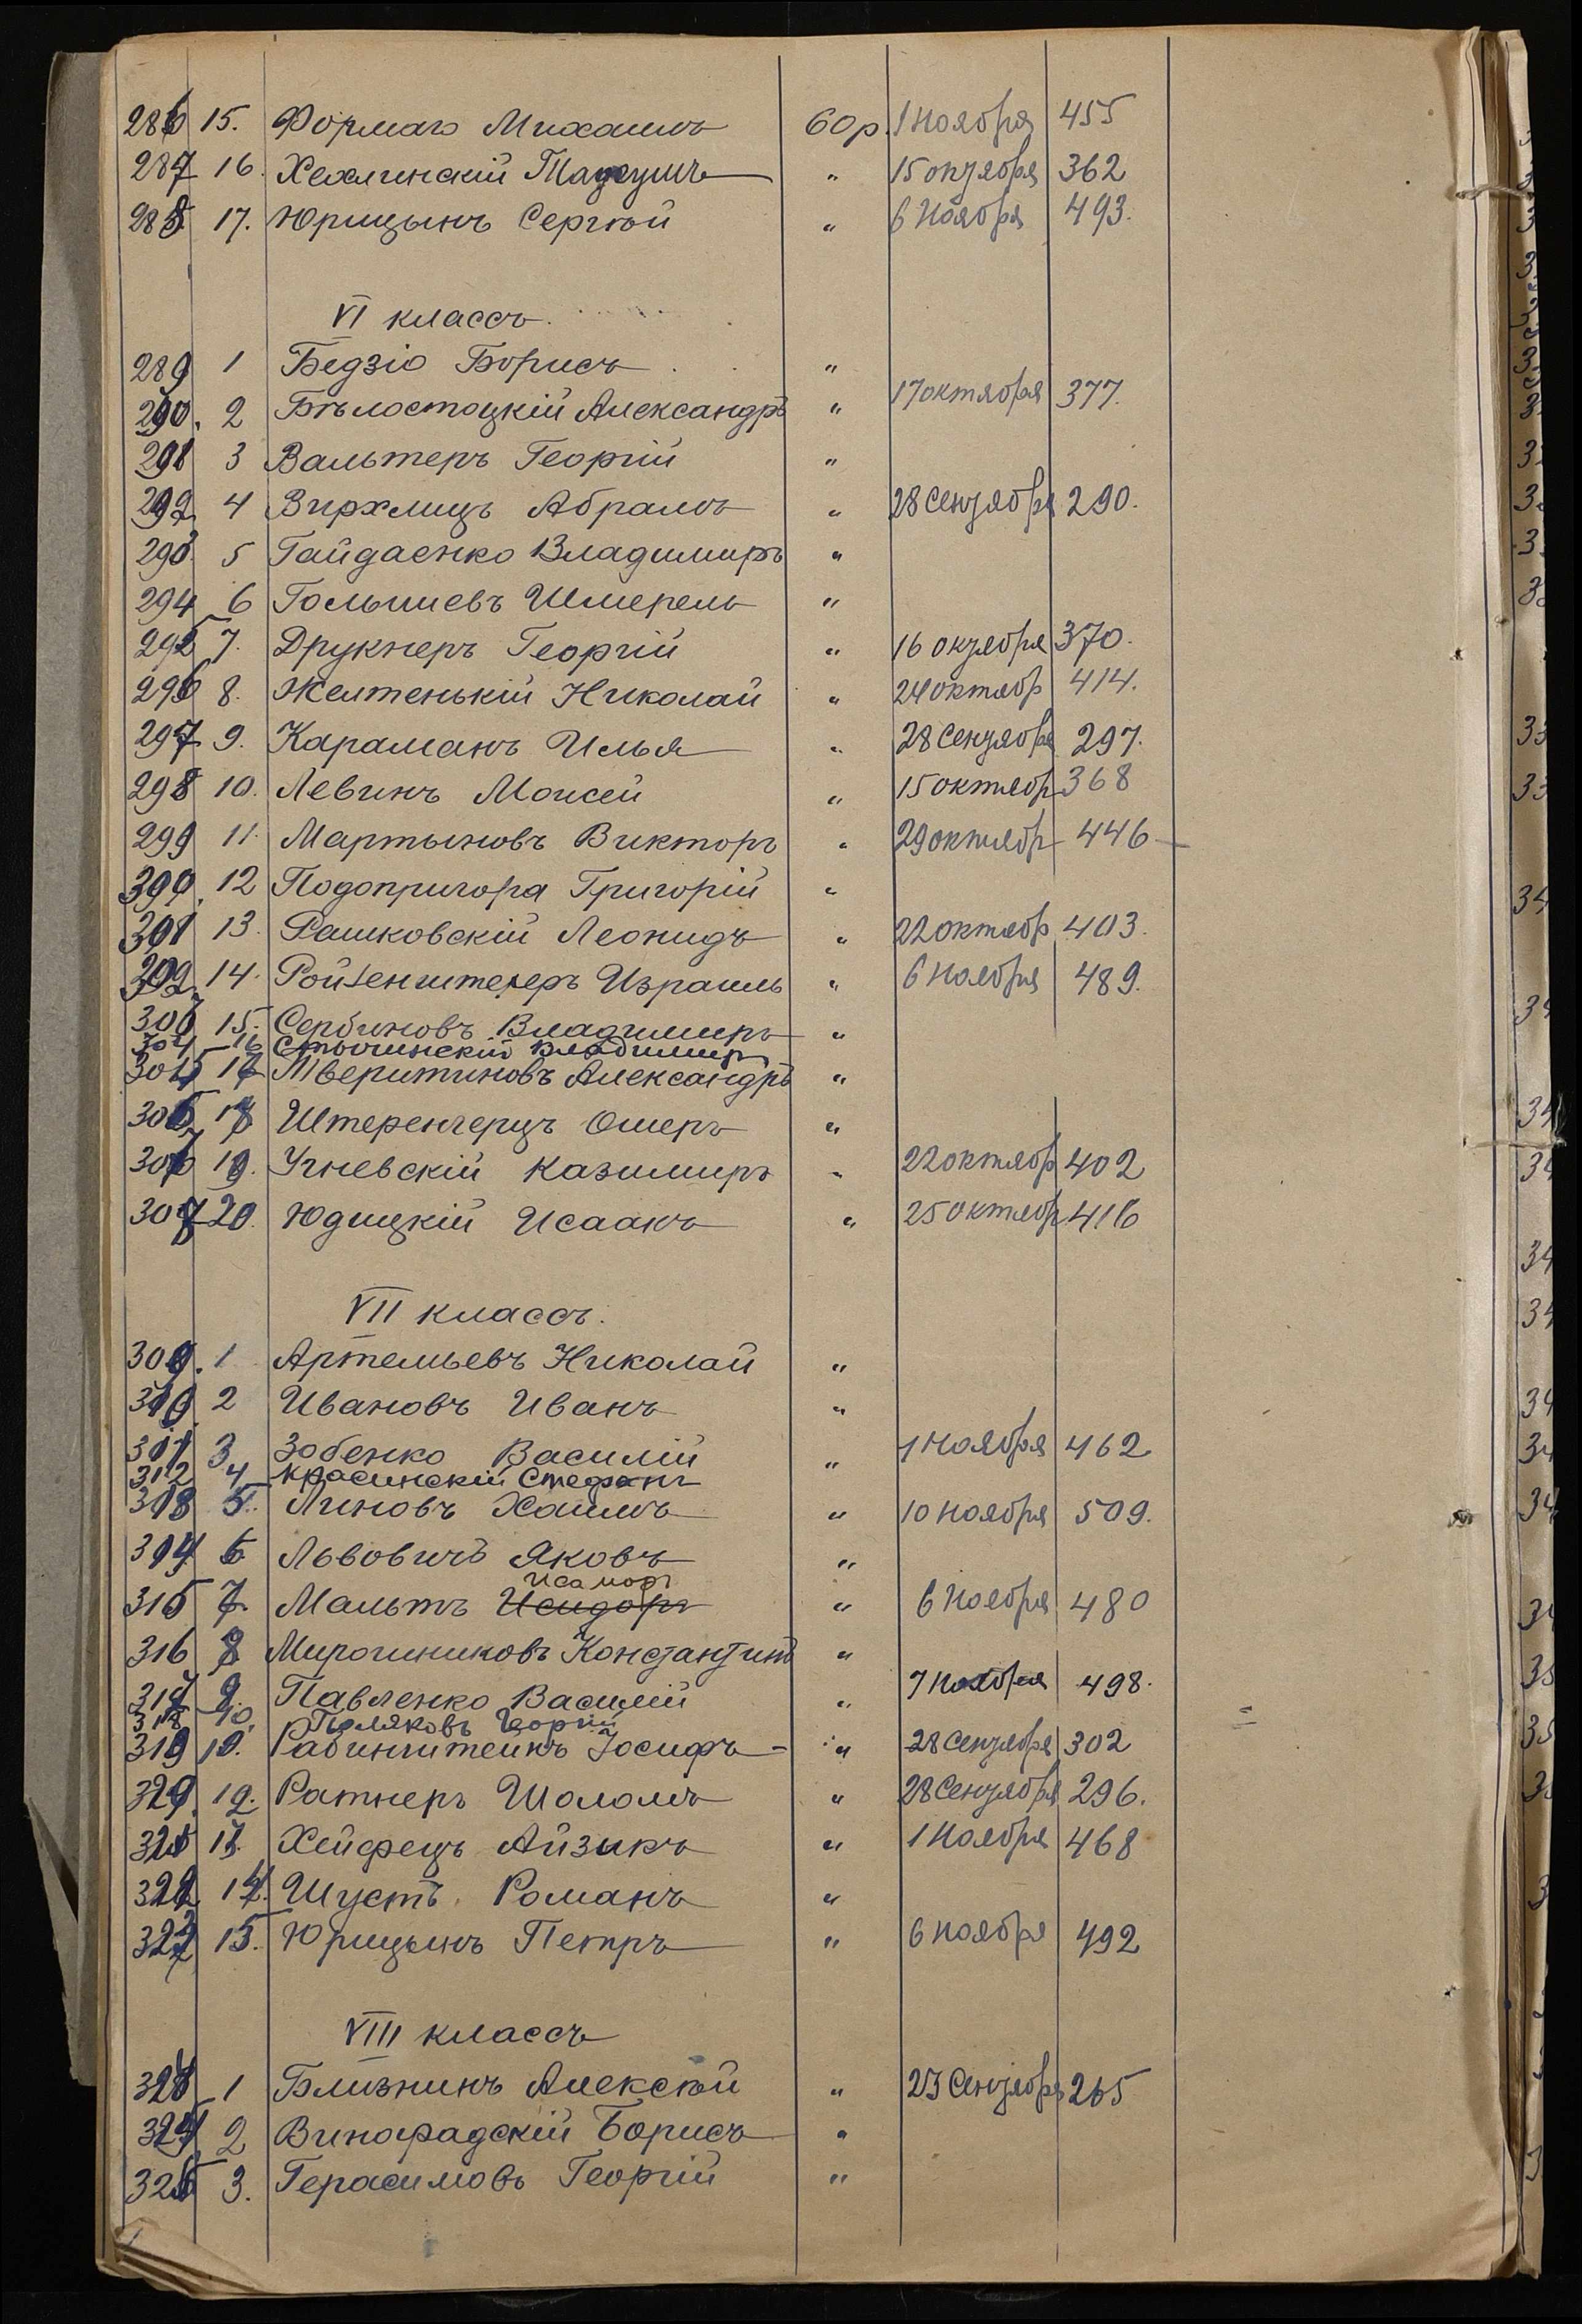 286 15. Формаго Михаилъ 60р. 1 Ноября 455
287 16. Хехлинскій Тадеушъ " 15 октября 362
288 17. Юрицынъ Сергѣй " 6 Ноября 493.
VI классъ.
289 1 Бедзіо Борисъ "
290. 2 Бѣлостоцкій Александръ " 17 октября 377.
291 3 Вальтеръ Георгій "
292 4 Вирхлицъ Абрамъ " 28 Сентября 290.
293 5 Гайдаенко Владимиръ "
294 6 Голышевъ Шмерель "
295 7. Друкнеръ Георгій " 16 октября 370.
296 8. Желтенькій Николай " 24 октябр 414.
297 9. Караманъ Илья " 28 Сентября 297.
298 10. Левинъ Моисей " 15 октябр 368
299 11. Мартыновъ Викторъ " 29 октябр 446
300. 12 Подопригора Григорій "
301 13. Рашковскій Леонидъ " 22 октябр 403.
302 14. Ройзенштернъ Израиль " 6 ноября 489.
303 15. Сербиновъ Владимиръ "
304 16 Владимиръ
305 17 Тверитиновъ Александръ "
306 18 Штеренгерцъ Ошеръ "
307 19. Учневскій Казимиръ " 22 октябр 402
308 20. Юдицкій Исаакъ " 25 октябр 416
VII классъ.
309. 1 Артемьевъ Николай "
310. 2 Ивановъ Иванъ "
311 3 Зобенко Василій " 1 Ноября 462
312 4 Красинскій Стефанъ
313 5. Линовъ Хаимъ " 10 ноября 509.
314 6 Львовичъ Яковъ "
Исаморъ
315 7. Мальтъ Исидоръ " 6 Ноября 480
316 8 Мирошниковъ Константинъ "
317 9. Павленко Василій " 7 ноября 498.
318 10. Поляковъ Георгій
319 11. Рабинштейнъ Іосифъ " 28 Сентября 302
320. 12. Ратнеръ Шоломъ " 28 Сентября 296.
321 13. Хейфецъ Айзикъ " 1 Ноября 468
322 14. Шустъ Романъ "
323 15. Юрицынъ Петръ " 6 ноября 492
VIII классъ
324 1 Близнинъ Алексѣй " 23 Сентябрь 265
325 2 Виноградскій Борисъ "
326 3. Герасимовъ Георгій "